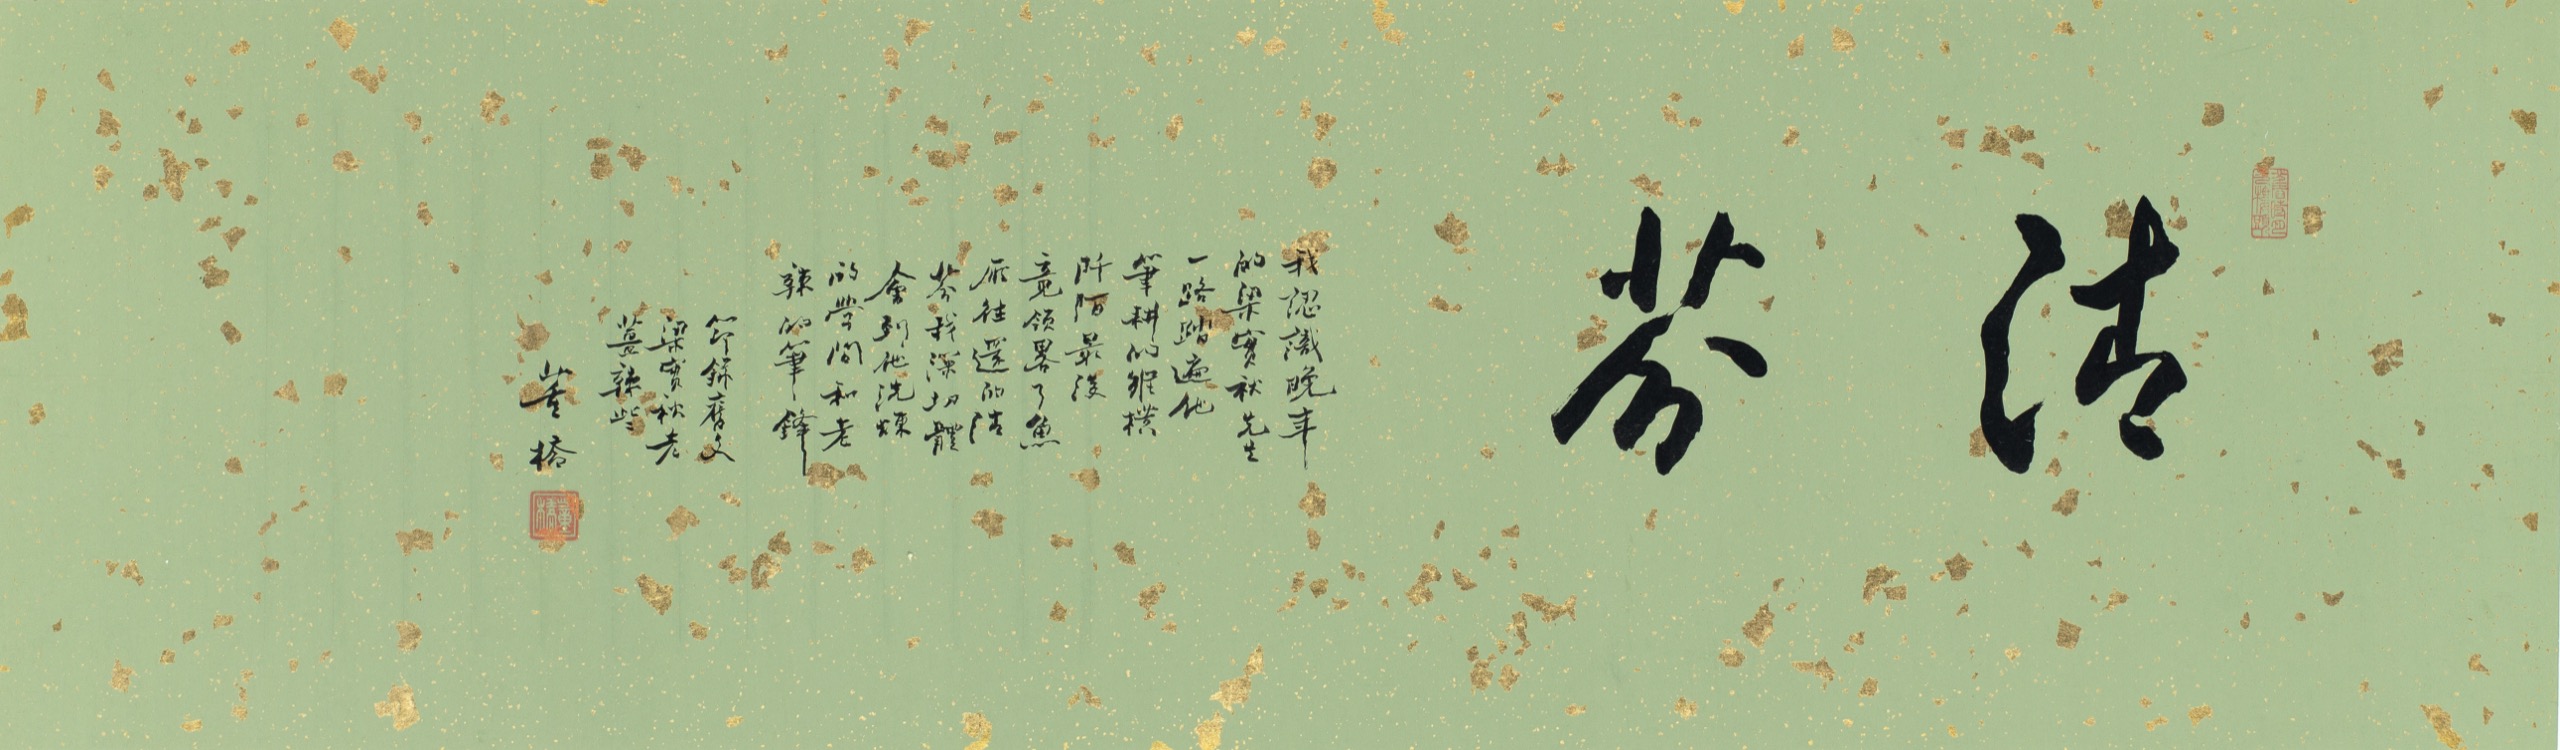 清芬
我認識晚年
的梁實秋先生
一路踏遍他
筆耕的雞樸
阡陌最後
竟領畧了魚
雁往還的清
芬我深切體
會到他洗煉
的學問和老
辣的筆鋒
節錄舊文
梁實秋老
薑辣些
董橋
董橋